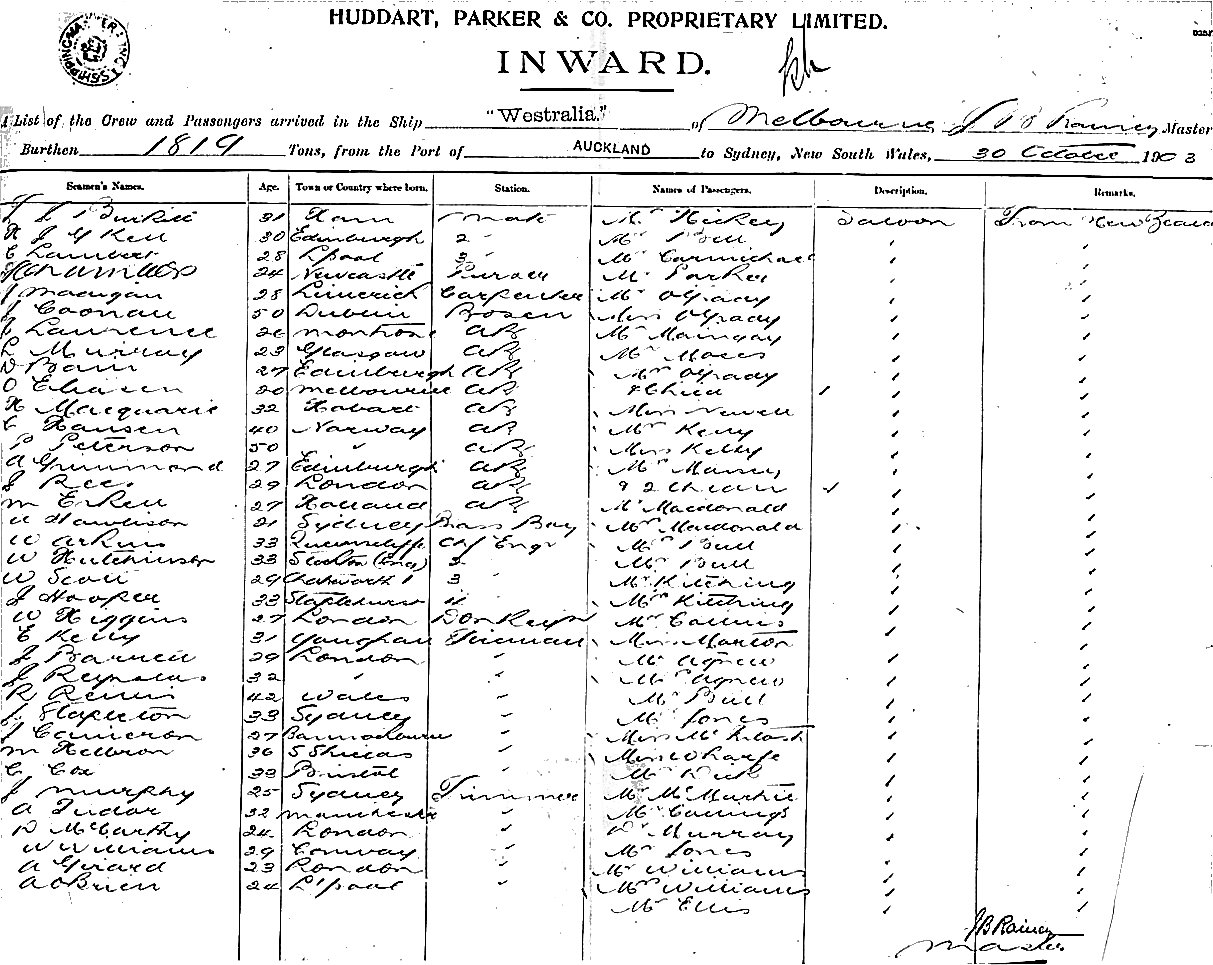 HUDDART, PARKER & CO. PROPRIETARY LIMITED.
INWARD.
List of the Crew and Passengers arrived in the Ship "Westralia." of Melbourne J B Rainey Master
Burthen 1819 Tons, from the Port of AUCKLAND to Sydney, New South Wales, 30 October 1903
Seamen's Names. Age. Town or Country where born. Station. Names of Passengers. Description. Remarks.
31 Ham Mate Mr Hickey Saloon From New Zealand
30 Edinburgh 2 " Mr Bell "
C Lambert 28 L'pool 3 " Mr Carmichael "
24 Newcastle Purser Mr Parker "
28 Limerick Carpenter Mr O'Grady "
J Coonan 50 Dublin Bosen Miss O'Grady "
Laurence 26 Montrose AB Mr Maingay "
L Murray 23 Glasgow AB Mr Moses "
D Bain 27 Edinburgh AB Mrs O'Grady "
O Eliasen 20 Melbourne AB & Child "
H Macquarie 32 Hobart AB Miss Newell "
C Hansen 40 Norway AB Mr Kelly "
P Peterson 50 " AB Miss Kelly "
A Grummond 27 Edinburgh AB "
J Rees 29 London AB & 2 Children "
27 Holland AB Mr Macdonald "
21 Sydney Brass Boy Mrs Macdonald "
W Arkins 33 Queenscliffe Chf Engr Mr Bull "
W Hutchinson 33 Stockton (Eng) 2 " Mr Bull "
W Scott 29 3 " Mr Kitching "
J Hooper 33 Staplehurst 4 Mrs Kitching "
W Higgins 27 London Donkeyn Mr Collins "
E Kelly 31 Fireman Miss Marton "
29 London " Mr Agnew "
J Reynolds 32 " " Mrs Agnew "
42 Wales " Mr Bull "
J Stapleton 33 Sydney " Mr Jones "
J Cameron 27 Bannockburn " Miss McIntosh "
M Hebron 36 S Shields " Miss Wharfe "
C Cox 33 Bristol " "
J Murphy 25 Sydney Trimmer "
A Tudor 32 Manchester " "
D McCarthy 24 London " Dr Murray "
W Williams 29 Conway " Mr Jones "
A Girard 23 London " Mr Williams "
A O'Brien 24 L'pool " Mrs Williams "
Mr Ellis "
JB Rainey
Master